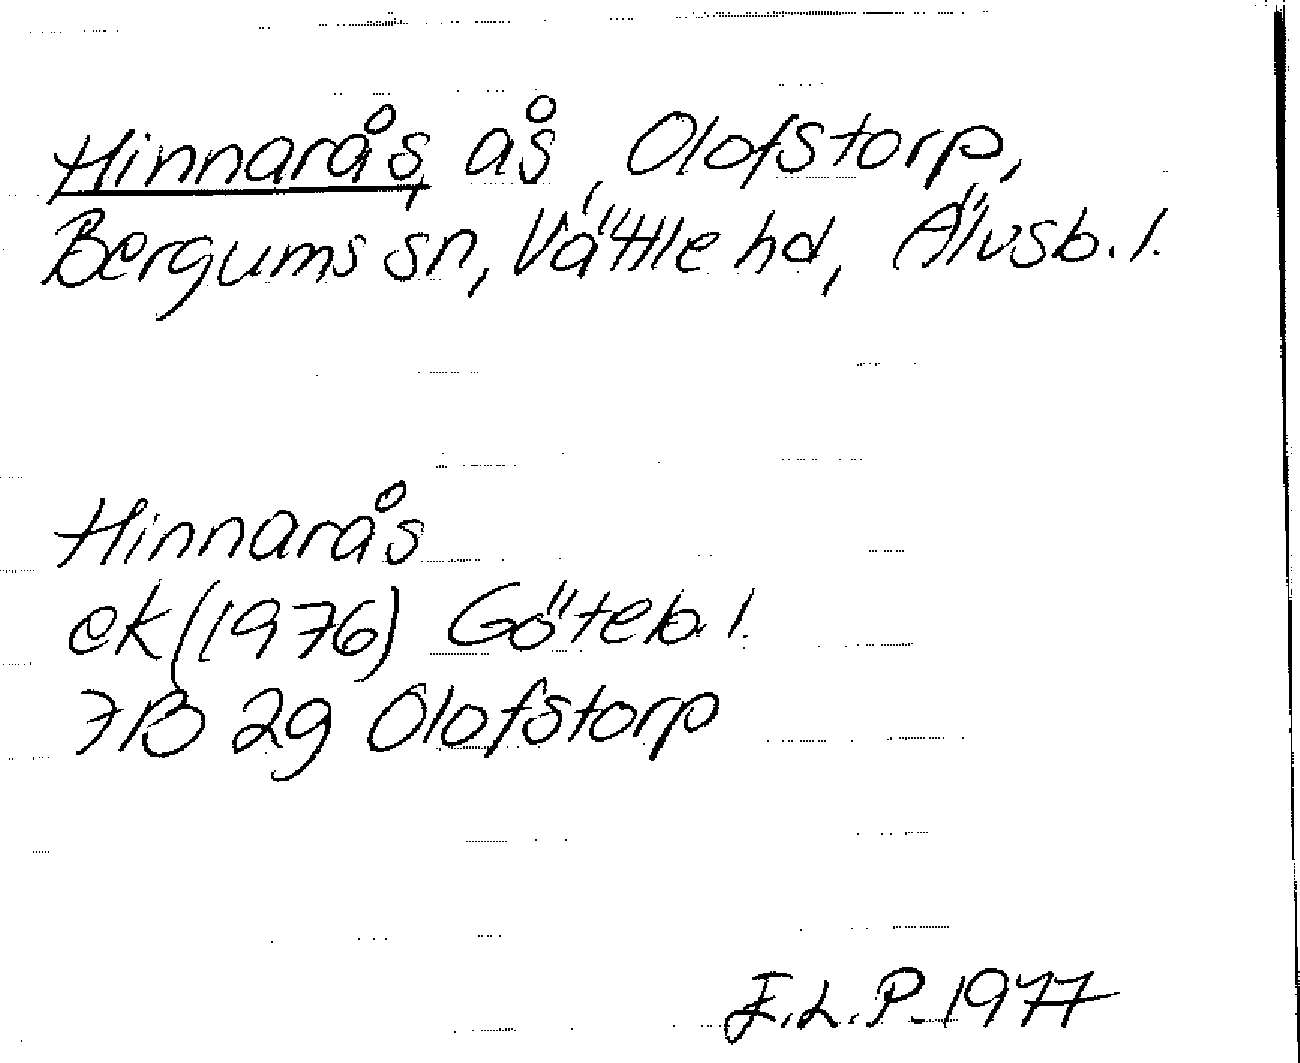 Hinnarås, ås, Olofstorp,
Bergums sn, Vättle hd, Älvsb. l.
Hinnarås
ek (1976) Göteb. l.
7B 2g Olofstorp
E.L.P. 1977